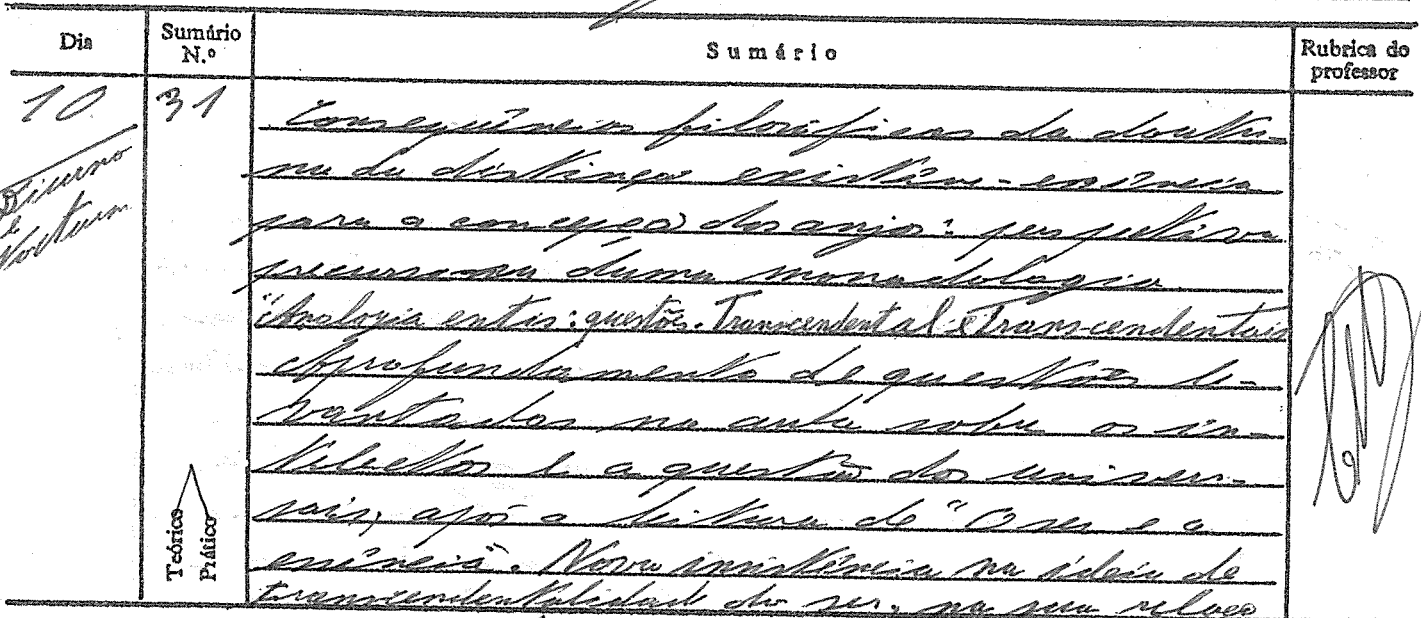 Dia
Sumário N.º
Sumário
Rubrica do professor
10.
31
Diurno
e
Nocturn
Consequências filosóficas da doutri-
na da distinção existência-essência
para a concepção dos anjos: perspectiva
precursora duma monadologia.
"Analogia entis: questões. Transcendental e Transcendentais
Aprofundamento de questões le-
vantadas na aula sobre os in-
telectos e a questão dos univer-
sais, após a leitura de "O ser e a
essência". Nova insistência na ideia de
transcendentalidade do ser, na sua relação
Teórico
Prático